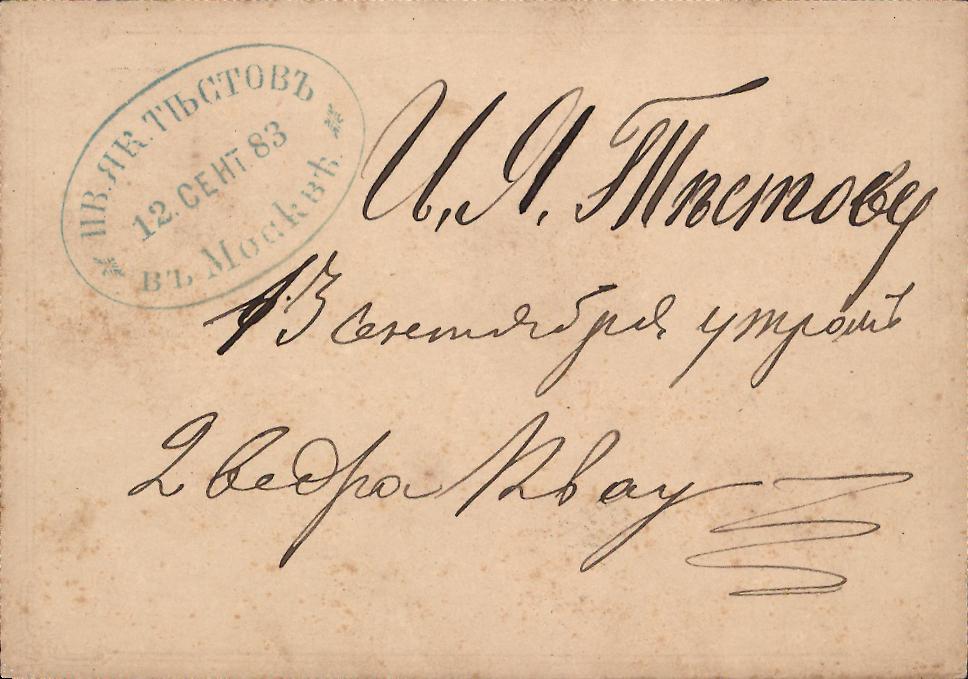 ИВ. ЯК. ТѢСТОВЪ
12. СЕНТ. 83
ВЪ Москвѣ.
И. Я. Тѣстову
13 сентября, утромъ
2 ведра Квасу